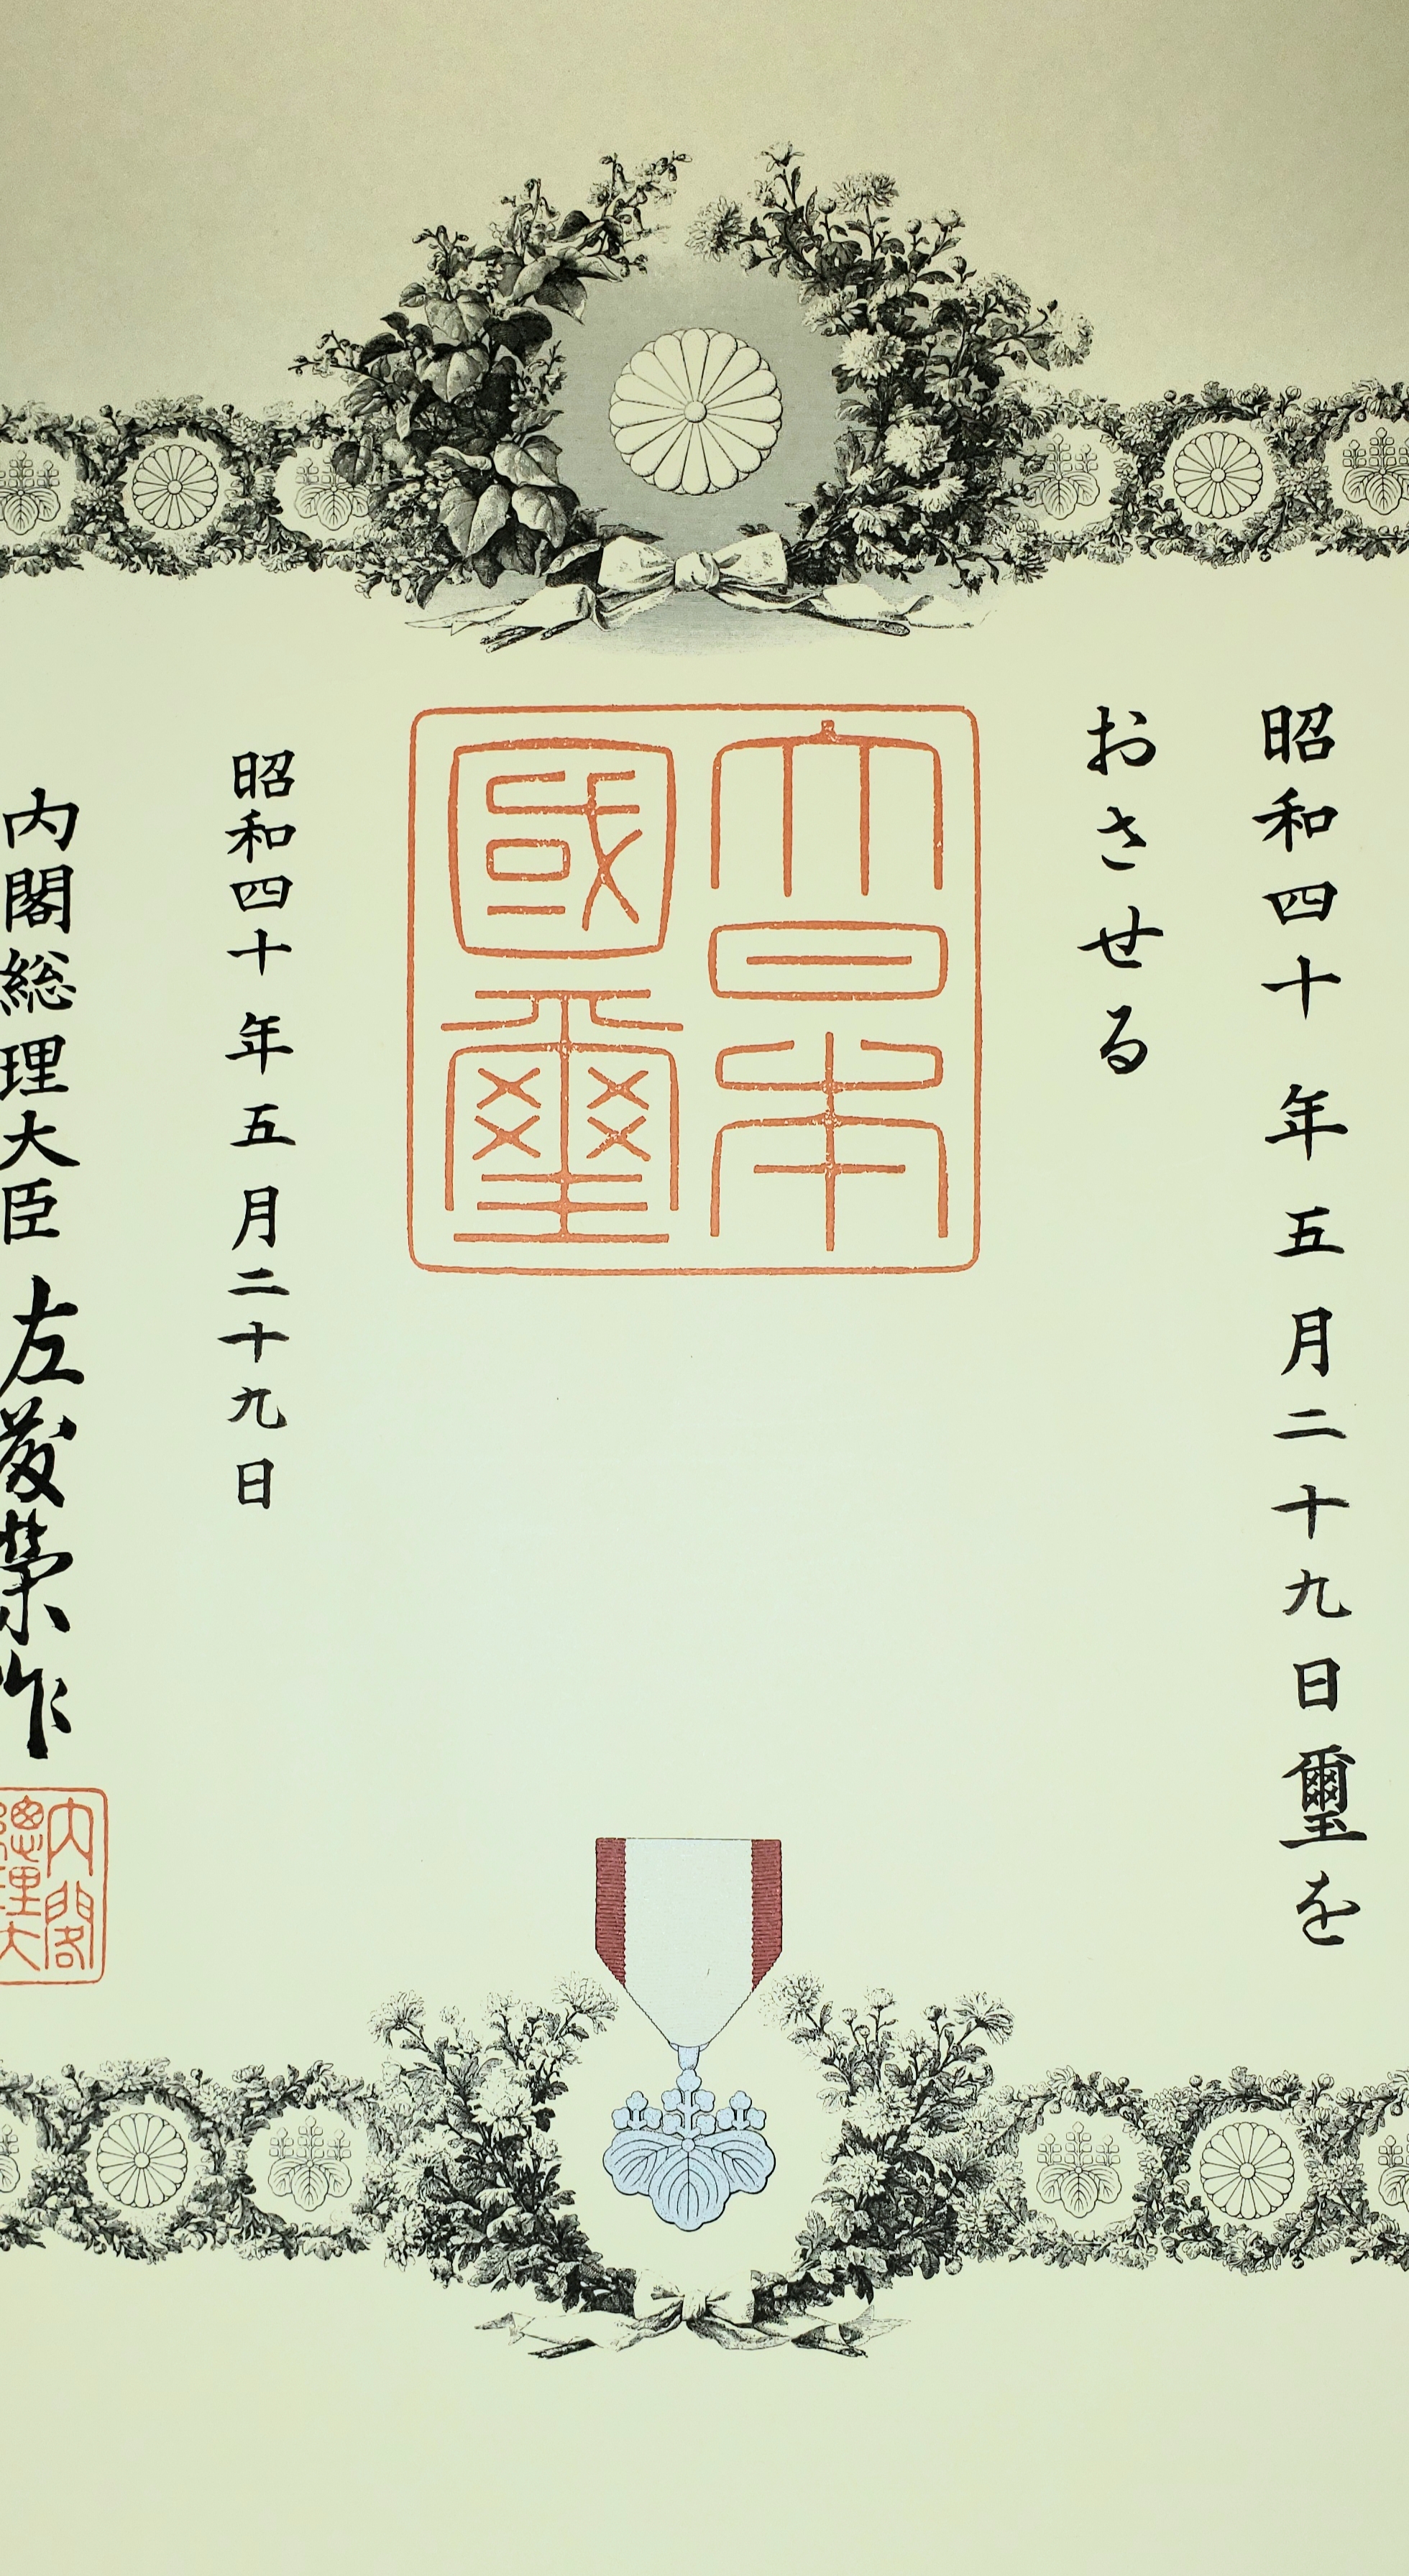 昭和四十年五月二十九日璽を
おさせる
大日本國璽
昭和四十年五月二十九日
内閣総理大臣 佐藤榮作
内閣總理大